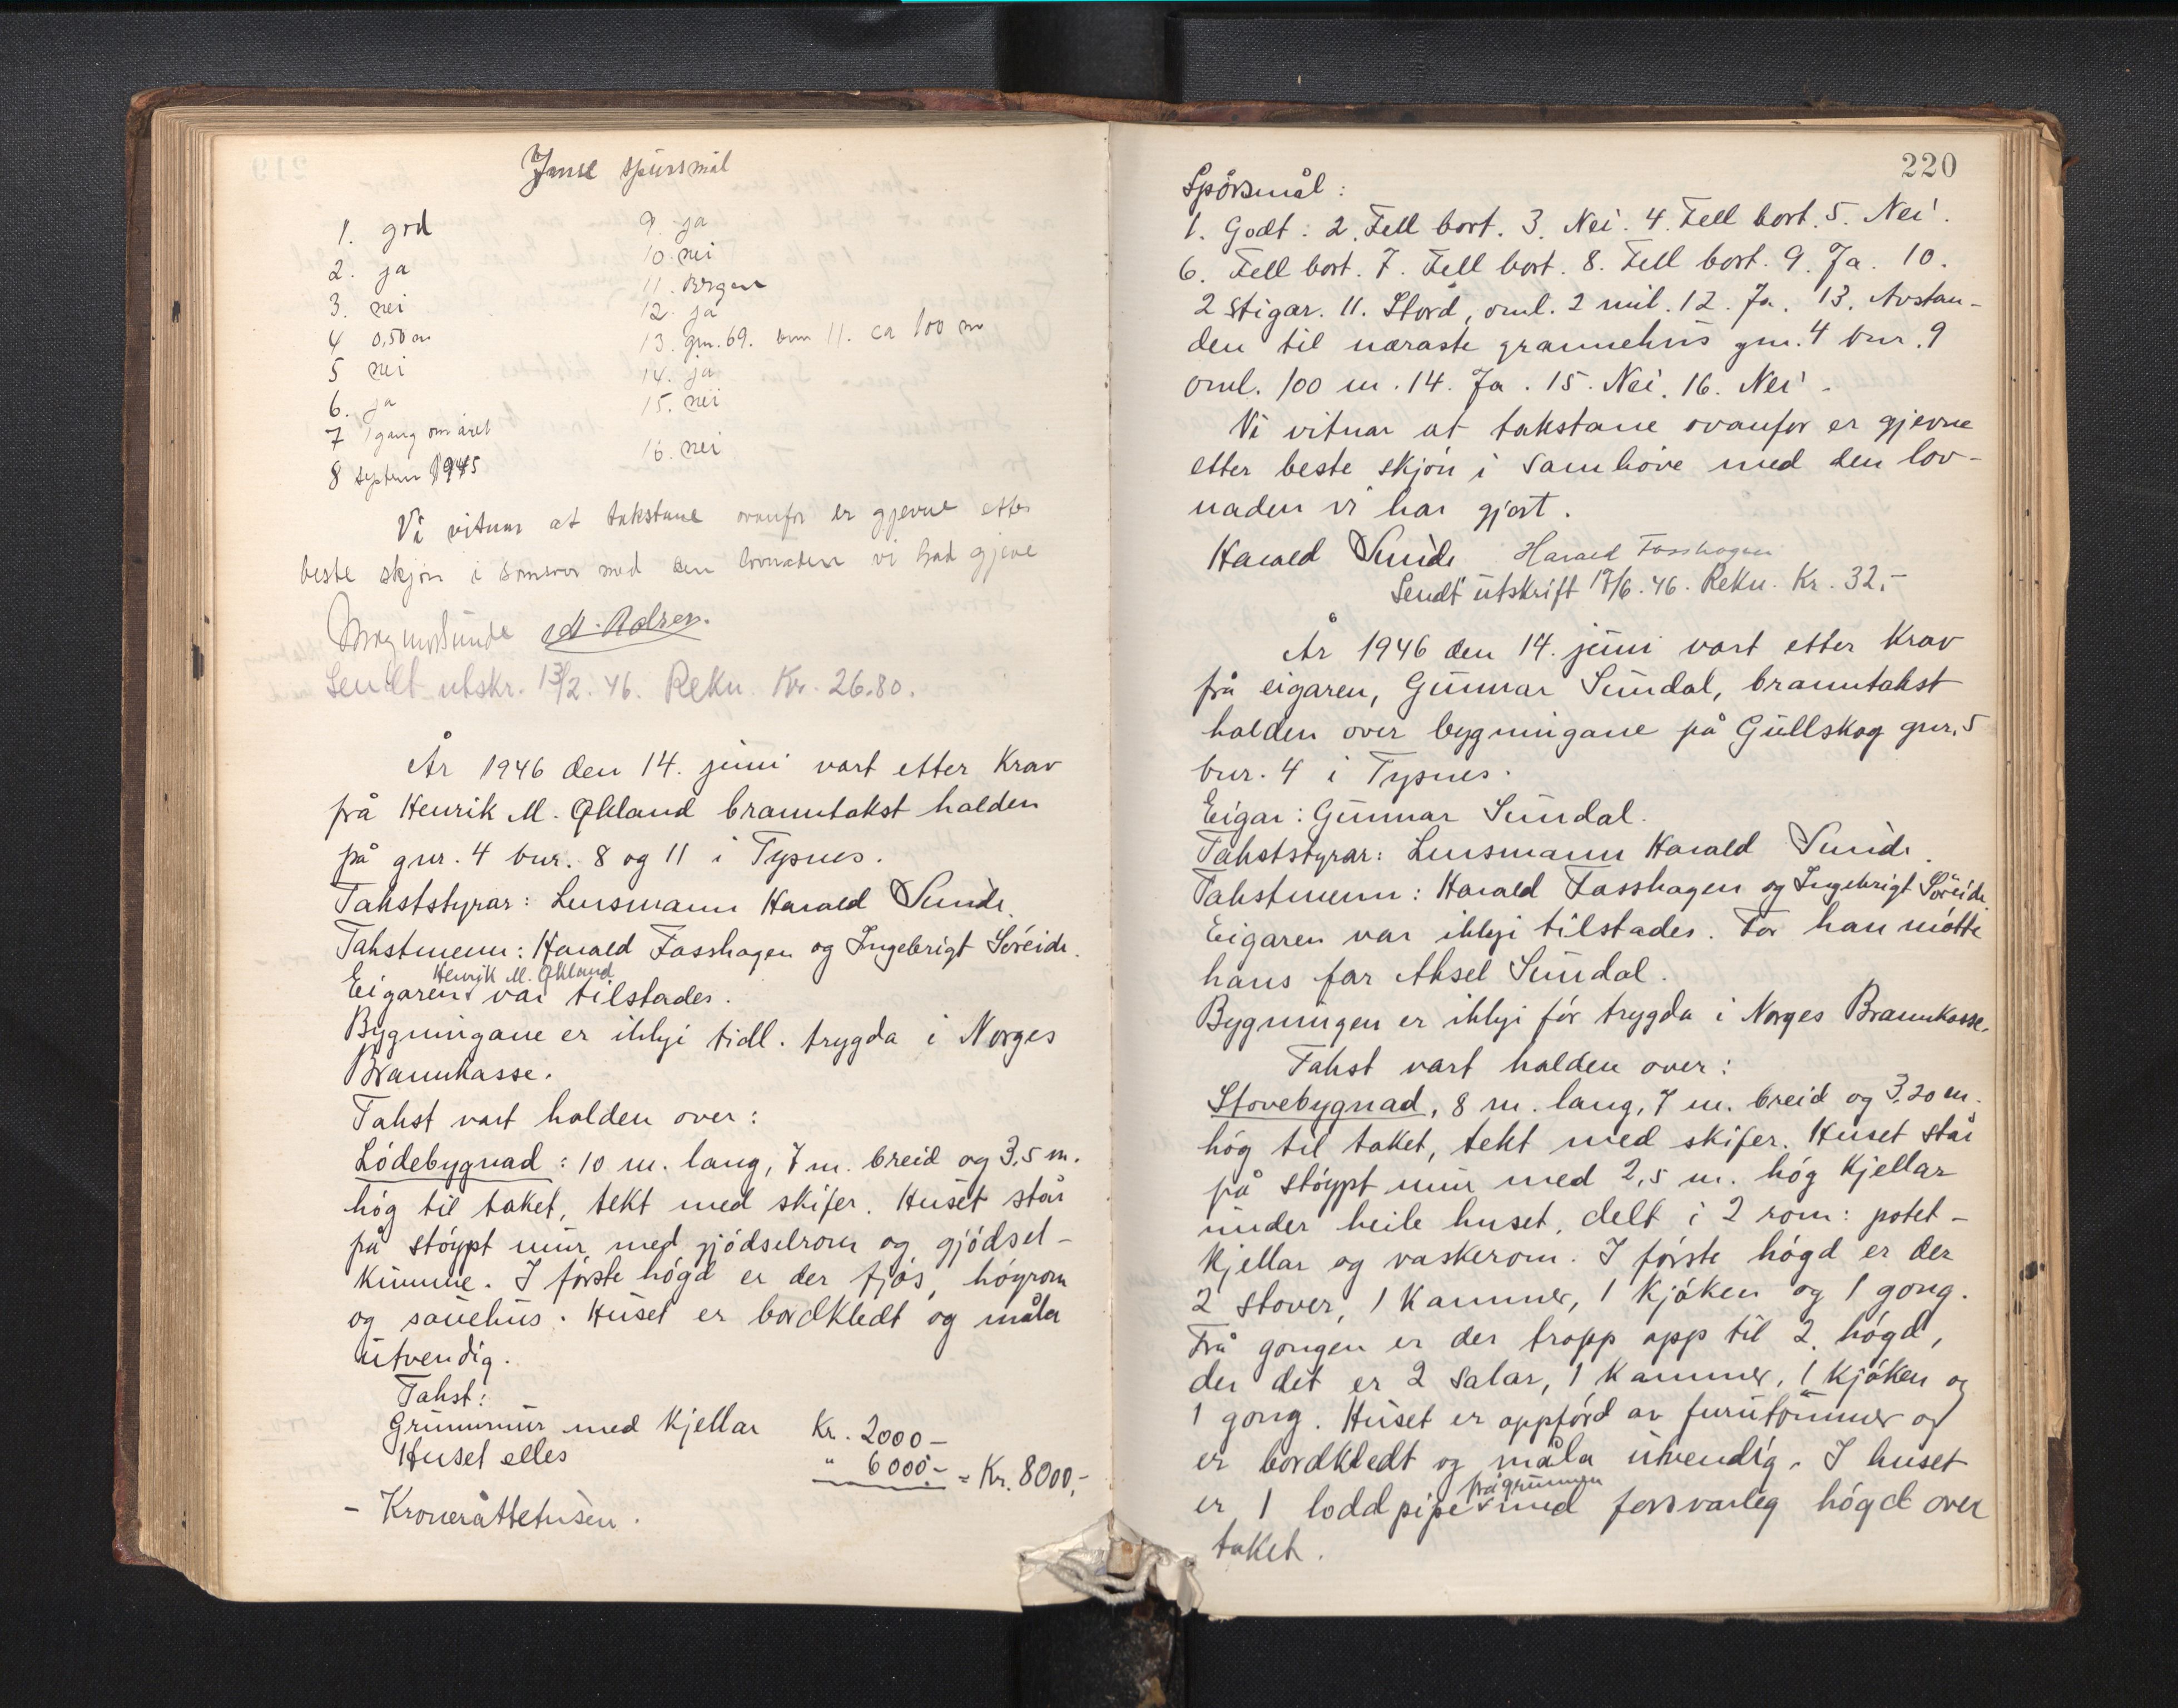 Ymse spursmål
1. god
2. ja
3. nei
4 0,50 m
5 nei
6. ja
7 1 gang om året
8 septemr 1945
9. ja
10. nei
11. Bergen
12. ja
13. gnr. 69. bnr 11. ca 100 m
14. ja
15. nei
16. nei
Vi vitnar at takstane ovanfor er gjevne etter
beste skjøn i samsvar med den lovnaden vi had gjeve
Magnus Sunde
Sendt utskr. 13/2. 46. Rekn. Kr. 26.80.
År 1946 den 14. juni vart etter krav
frå Henrik M. Økland branntakst halden
på gnr. 4 bnr. 8 og 11 i Tysnes.
Takststyrar: Lensmann Harald Sunde.
Takstmenn: Harald Fasshagen og Ingebrigt Søreide.
Henrik M. Økland
Eigaren var tilstades.
Bygningane er ikkje tidl. trygda i Norges
Brannkasse.
Takst vart halden over:
Lødebygnad: 10 m. lang, 7 m. breid og 3,5 m.
høg til taket, tekt med skifer. Huset står
på støypt mur, med gjødselrom og gjødsel-
kumme. I første høgd er der fjøs, høyrom
og sauehus. Huset er bordkledt og måla
utvendig.
Takst:
Grunnmur med kjellar Kr. 2000 –
Huset elles " 6000.– = Kr. 8000,-
– Kroneråttetusen.
220
Spørsmål:
1. Godt: 2. Fell bort. 3. Nei. 4. Fell bort. 5. Nei.
6. Fell bort. 7. Fell bort. 8. Fell bort. 9. Ja. 10.
2 stigar. 11. Stord, oml. 2 mil. 12. Ja. 13. Avstan-
den til næraste grannehus gnr. 4 bnr. 9
oml. 100 m. 14. Ja. 15. Nei. 16. Nei.
Vi vitnar at takstane ovanfor er gjevne
etter beste skjøn i samhøve med den lov-
naden vi har gjort.
Harald Sunde Harald Fasshagen
Sendt utskrift 17/6. 46. Rekn. Kr. 32.–
År 1946 den 14. juni vart etter krav
frå eigaren, Gunnar Sundal, branntakst
halden over bygningane på Gullskog gnr. 5
bnr. 4 i Tysnes.
Eigar: Gunnar Sundal.
Takststyrar: Lensmann Harald Sunde.
Takstmenn: Harald Fasshagen og Ingebrigt Søreide.
Eigaren var ikkje tilstades. For han møtte
hans far Aksel Sundal.
Bygningen er ikkje før trygda i Norges Brannkasse.
Takst vart halden over:
Stovebygnad, 8 m. lang, 7 m. breid og 3,20 m.
høg til taket, tekt med skifer. Huset står
på støypt mur med 2,5 m. høg kjellar
under heile huset, delt i 2 rom: potet-
kjellar og vaskerom. I første høgd er der
2 stover, 1 kammer, 1 kjøken og 1 gong.
Frå gongen er der tropp opp til 2. høgd,
der det er 2 salar, 1 kammer, 1 kjøken og
1 gong. Huset er oppførd av furutømmer og
er bordkledt og måla utvendig. I huset
frå grunnen
er 1 loddpipe med forsvarleg høgd over
taket.